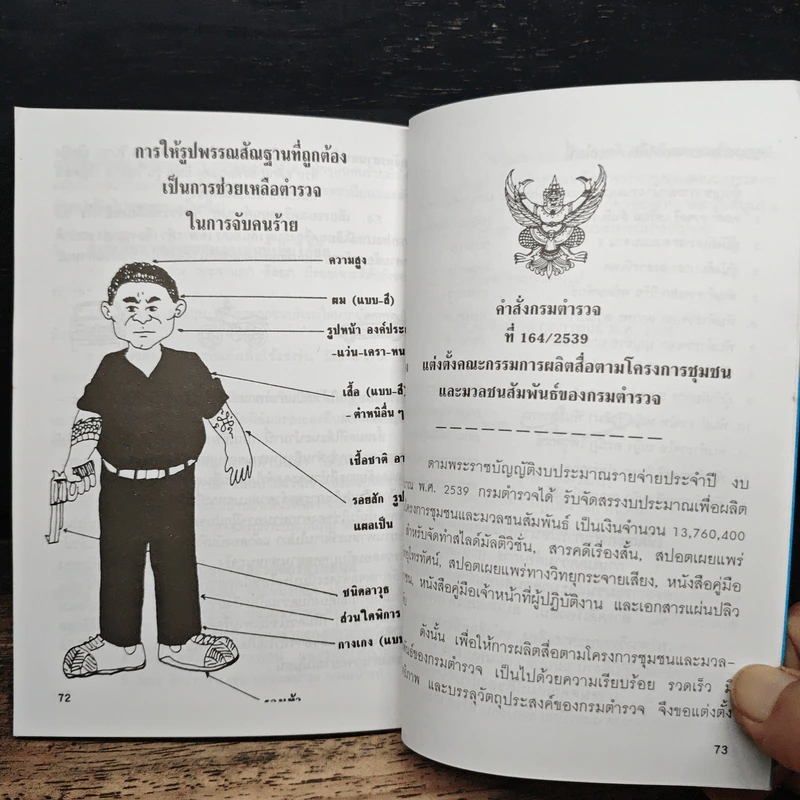 การให้รูปพรรณสัณฐานที่ถูกต้อง
เป็นการช่วยเหลือตำรวจ
ในการจับคนร้าย
ความสูง
ผม (แบบ-สี)
รูปหน้า องค์ประ
-แว่น-เครา-หน
เสื้อ (แบบ-สี)
- ตำหนิอื่น ๆ
เชื้อชาติ อา
รอยสัก รูป
แผลเป็น
ชนิดอาวุธ
ส่วนใดพิการ
กางเกง (แบบ
72
คำสั่งกรมตำรวจ
ที่ 164/2539
แต่งตั้งคณะกรรมการผลิตสื่อตามโครงการชุมชน
และมวลชนสัมพันธ์ของกรมตำรวจ
ตามพระราชบัญญัติงบประมาณรายจ่ายประจำปี งบ
าณ พ.ศ. 2539 กรมตำรวจได้ รับจัดสรรงบประมาณเพื่อผลิต
โครงการชุมชนและมวลชนสัมพันธ์ เป็นเงินจำนวน 13,760,400
สำหรับจัดทำสไลด์มัลติวิชั่น, สารคดีเรื่องสั้น, สปอตเผยแพร่
ยุโทรทัศน์, สปอตเผยแพร่ทางวิทยุกระจายเสียง, หนังสือคู่มือ
ชน, หนังสือคู่มือเจ้าหน้าที่ผู้ปฏิบัติงาน และเอกสารแผ่นปลิว
ดังนั้น เพื่อให้การผลิตสื่อตามโครงการชุมชนและมวล-
นธ์ของกรมตำรวจ เป็นไปด้วยความเรียบร้อย รวดเร็ว มี
ภาพ และบรรลุวัตถุประสงค์ของกรมตำรวจ จึงขอแต่งตั้ง
73